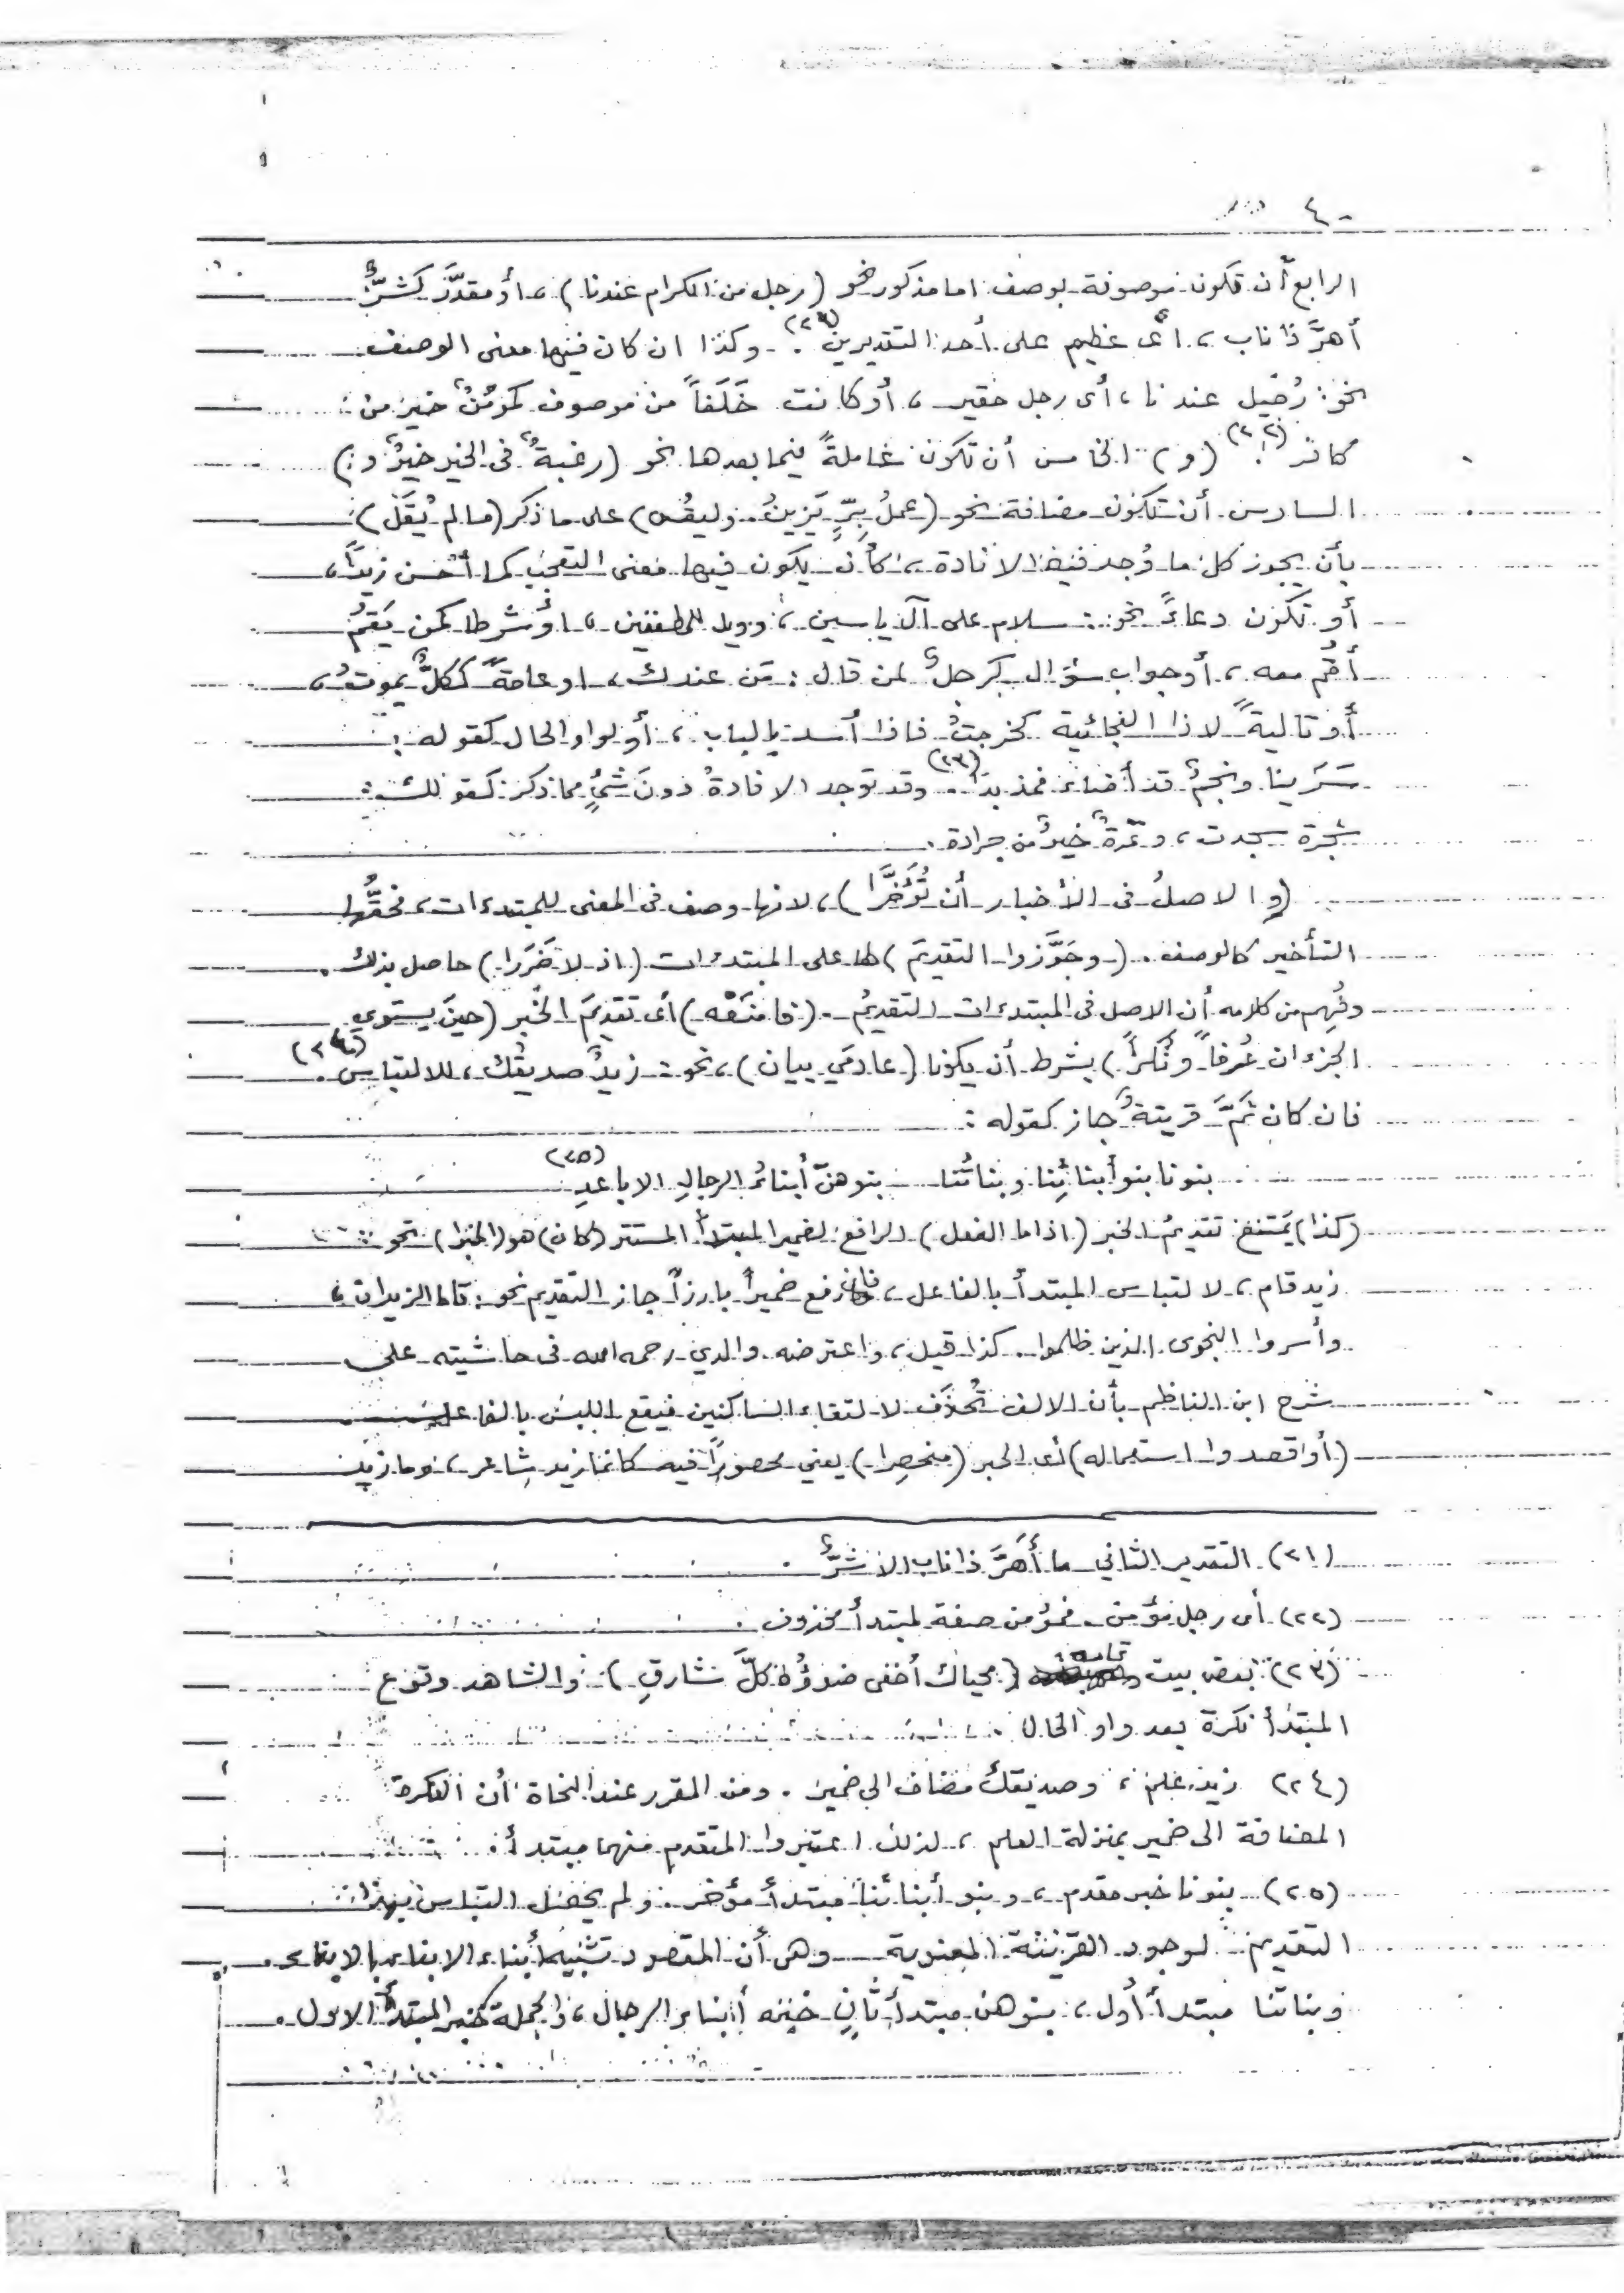 - ٤
الرابع أن تكون موصوفة بوصف اما مذكور نحو (رجل من الكرام عندنا) ، أو مقدَّر كشرٌّ
أهرَّ ذا ناب ، أى عظيم على أحد التقديرين (٢١) . وكذا ان كان فيها معنى الوصف
نحو : رُجَيل عندنا ، أى رجل حقير ، أو كانت خَلَفاً من موصوف كمؤمنٌ خيرٌ من
كافر (٢٢) . (و) الخامس أن تكون عاملةً فيما بعدها نحو (رغبةٌ فى الخير خيرٌ و)
السادس أن تكون مضافة نحو (عملُ بِرٍّ يَزينُ . وليقَس) على ما ذكر (ما لم يُقَل)
بأن يجوز كل ما وُجد فيه الافادة ، كأن يكون فيها معنى التعجب كما أحسن زيداً ،
أو تكون دعاءً نحو : سلام على آل ياسين ، وويل للمطففين ، أو شرطا كمن يَقمْ
أقم معه ، أو جواب سؤال كرجلٌ لمن قال : مَن عندك ، او عامةً ككلٌّ يموتُ ،
أو تاليةً لاذا الفجائية كخرجتُ فاذا أسد بالباب ، أو لواو الحال كقوله :
سَرَينا ونجمٌ قد أضاء فمذ بدَا (٢٣) .. وقد توجد الافادةُ دونَ شئٍ مما ذكر كقولك :
شجرة سجدت ، وتمرةٌ خيرٌ من جرادة .
(والاصلُ فى الأخبار أن تُؤَخَّرا) ، لانها وصف فى المعنى للمبتدءات ، فحقُّها
التأخير كالوصف . (وجَوَّزوا التقديمَ) لها على المبتدءات (اذ لا ضَرَرا) حاصل بذلك .
وفُهِم من كلامه أن الاصل فى المبتدءات التقديمُ . (فامنَعْه) أى تقديمَ الخبر (حينَ يستوي
الجزءان عُرفاً ونُكراً) بشرط أن يكونا (عادمَي بيان) ، نحو : زيدٌ صديقُك ، للالتباس (٢٤) .
فان كان ثَمَّ قرينةٌ جاز كقوله :
بنونا بنو أبنائِنا وبناتُنا بنوهنّ أبناءُ الرجالِ الاباعدِ (٢٥)
(كذا) يَمتنع تقديمُ الخبر (اذا ما الفعل) الرافع لضمير المبتدأ المستتر (كان) هو (الخبرا) نحو :
زيد قام ، لالتباس المبتدأ بالفاعل ، فان رفع ضميراً بارزاً جاز التقديم نحو : قاما الزيدان ،
وأسروا النجوى الذين ظلموا . كذا قيل ، واعترضه والدي رحمه الله فى حاشيته على
شرح ابن الناظم بأن الالف تُحذَف لالتقاء الساكنين فيقع اللبس بالفاعل
(أو قصدوا استعماله) أى الخبر (منحصِرا) يعني محصوراً فيه كانما زيد شاعر ، وما زيد
(٢١) التقدير الثاني ما أَهَرَّ ذا ناب الا شرٌّ .
(٢٢) أى رجل مؤمن . فمؤمن صفة لمبتدأ محذوف .
(٢٣) بعض بيت تمامه : (محياك أخفى ضوؤُه كلَّ شارقِ) . والشاهد وقوع
المبتدأ نكرة بعد واو الحال .
(٢٤) زيد علم ، وصديقك مضاف الى ضمير . ومن المقرر عند النحاة أن النكرة
المضافة الى ضمير بمنزلة العلم ، لذلك اعتبروا المتقدم منهما مبتدأ .
(٢٥) بنونا خبر مقدم ، وبنو أبنائنا مبتدأ مؤخر . ولم يحصل التباس بهذا
التقديم لوجود القرينة المعنوية وهى أن المقصود تشبيه أبناء الابناء بالابناء .
وبناتنا مبتدأ أول ، بنوهن مبتدأ ثانٍ خبره أبناء الرجال ، والجملة خبر المبتدأ الاول .